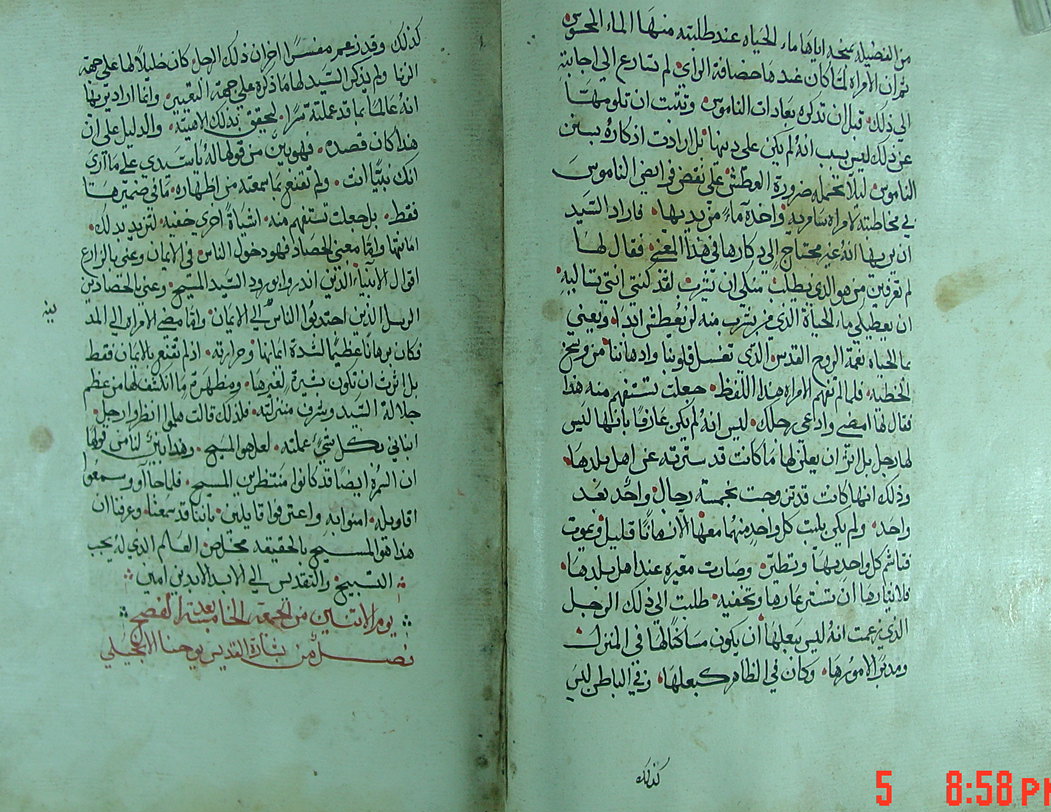 من الفضيله يمنحه اياها ماء الحياه عند طلبته منها الماء المحسوس
ثم ان الامراه لما كان عندها حصافة الراي لم تسارع الى اجابته
الى ذلك قبل ان تذكره بعادات الناموس وتيقنت ان تلومها
عن ذلك ليس بسبب انه لم يكن على دينها بل ارادت اذكاره بسنن
الناموس ليلا تحمله ضرورة العطش على نقض فرايض الناموس
في مخاطبته لامراه سامريه واخده ماء من يديها فاراد السيد
ان يريها انه غير محتاج الى تذكارها في هذا المعنى فقال لها
لم تعرفين من هو الذي يطلب منكي ان تشرب لقد كنتي انتي تساليه
ان يعطيكي ماء الحياة الذي من يشرب منه لن يعطش ابدا ويعني
بماء الحياه نعمة الروح القدس الذي تغسل قلوبنا واذهاننا من وسخ
الخطيه فلما لم تفهم الامراه هذا اللفظ جعلت تستفهم منه هذا
فقال لها امضي وادعي رجلك ليس انه لم يكن عارفا بانها ليس
لها رجل بل اثر ان يعلن لها ما كانت قد سترته عن اهل بلدها
وذلك انها كانت قد تزوجت بخمسة رجال واحد بعد
واحد ولم يكن يلبث كل واحد منهم معها الا زمانا قليل ويموت
وصارت معيره عند اهل بلدها
فلايثارها ان تستر عارها وتخفيه طلبت الى ذلك الرجل
الذي زعمت انه ليس بعلها ان يكون مساكنا لها في المنزل
ومدبر لامورها وكان في الظاهر كبعلها وفي الباطن ليس
كذلك
كذلك وقد زعم مفسرا اخر ان ذلك الرجل كان خليلا لها على جهة
الزنا ولم يذكر السيد لها ما ذكره على جهة التعيير وانما اراد يريها
انه عالما بما قد عملته سرا لتحقق بذلك لاهيته والدليل على ان
هذا كان قصده فهو بين من قولها له يا سيدي على ما ارى
انك نبيا انت ولم تقتنع بما سمعته من اظهاره ما في ضميرها
فقط بل جعلت تستفهم منه اشياء اخرى خفيه لتزيد بذلك
امانتها واما معنى الحصاد فهو دخول الناس في الايمان وعنى بالزارع
اقوال الانبياء الذين انذروا بورود السيد المسيح وعنى بالحصادين
الرسل الذين اجتذبوا الناس الى الايمان واما مضي الامراه الى المد
ينه
فكان برهانا عظيما لشدة ايمانها وحرارته اذ لم تقنع بالايمان فقط
بل اثرت ان تكون بشيره لغيرها ومظهره ما انكشف لها من عظم
جلالة السيد وشرف منزلته فلذلك قالت هلموا انظروا رجل
انباني بكل شي عملته لعل هو المسيح وهذا بين للناس قولها
ان السمره ايضا قد كانوا منتظرين المسيح فلما جاؤو وسمعوا
اقاويله امنوا به واعترفوا قايلين باننا قد سمعنا وعرفنا ان
هذا هو المسيح بالحقيقه مخلص العالم الذي له يجب
التسبيح والتقديس الى الابد الابدين امين
يوم الاثنين من الجمعه الخامسة بعد الفصح
فصل من بشارة القديس يوحنا الانجيلي
5 8:58 PM